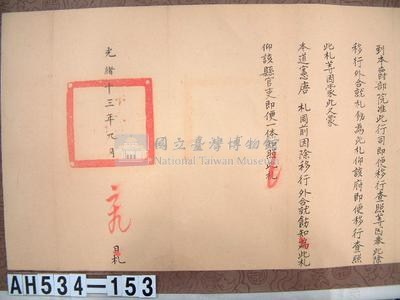 到本爵部院准此行司即便移行查照等因奉此除
移行外合就札飭為此札仰該府即便移行查照
此札等因蒙此又蒙
本道憲唐 札同前因除移行外合就飭知為此札
仰該縣官吏即便一体知照此札
光緒十三年九月
日札
國立臺灣博物館
National Taiwan Museum
AH534-153